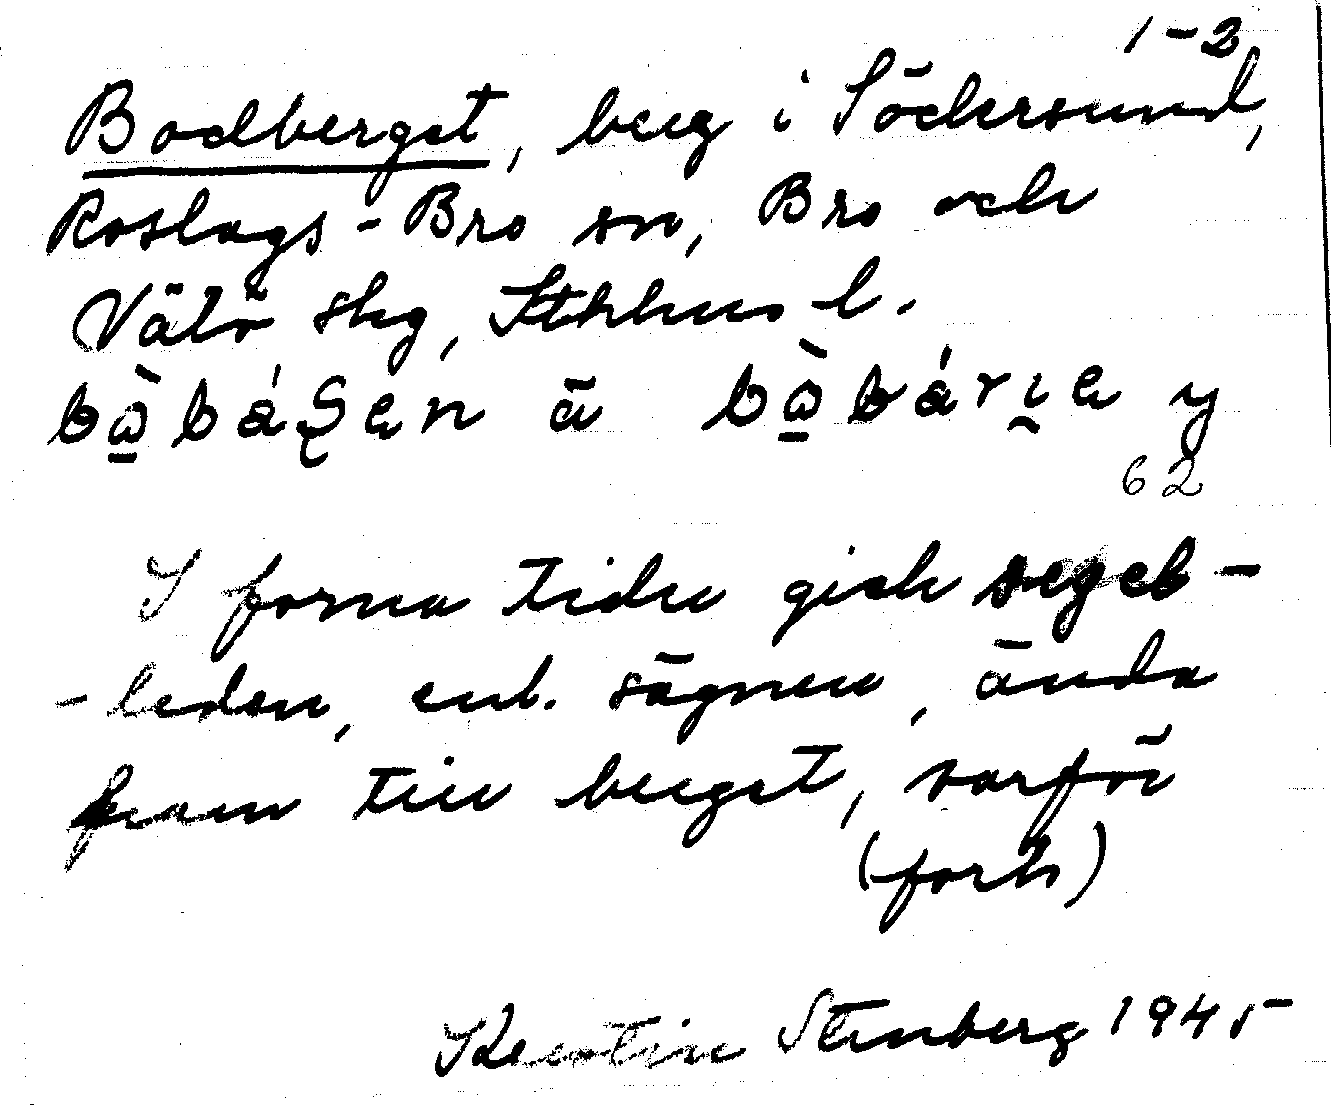 1-2
Bodberget, berg i Södersund,
Roslags-Bro sn, Bro och
Vätö skg, Sthlms l.
62
I forna tider gick segel-
-leden, enl. sägnen, ända
fram till berget, varför
(forts)
Kerstin Stenberg 1945